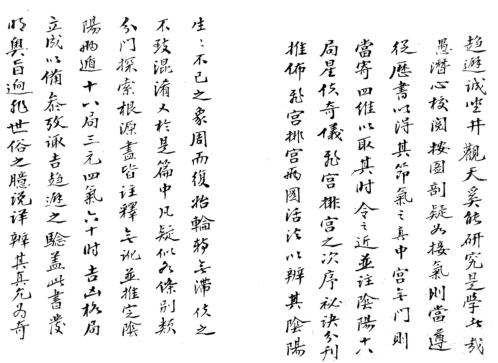 趋避诚坐井觀天奚能研究是學也哉
愚潛心校閱按圖剖疑如接氣則當遵
從歷書以得其節氣之真中宮無門則
當寄四维以取其時令之近並註陰陽十八
局星使奇儀飛宮排宮之次序祕訣分列
推佈飛宮排宮兩圖活法以辨其陰陽
生生不已之象周而復始輪轉無滞使之
不致混淆又於是篇中凡疑似各條别類
分门探索根源盡皆注釋無訛並推定陰
陽兩遁十八局三元四氣六十时吉凶格局
立成以備叅攷諏吉趋避之驗盖此書發
明奥旨迥非世俗之臆说详辨其真允为奇